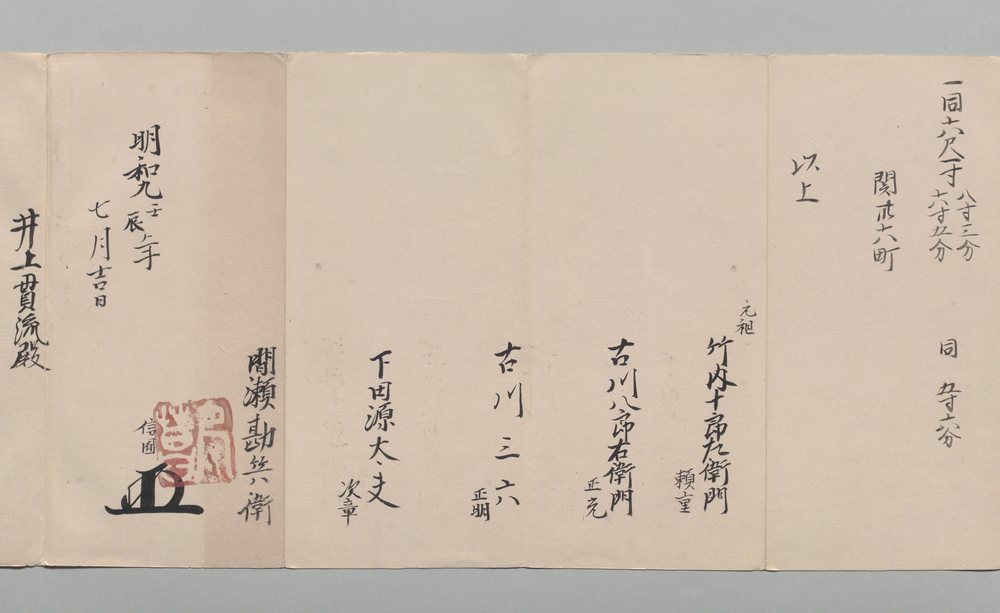 一同十八尺一寸 八寸三分
十六寸五分
同 五寸六分
関 十六町
以上
元祖
竹内十郎左衛門
頼重
古川八郎右衛門
正光
古川三六
正明
下田源太夫
次章
間瀬勘兵衛
信固
明和九壬辰年
七月吉日
井上貫流殿